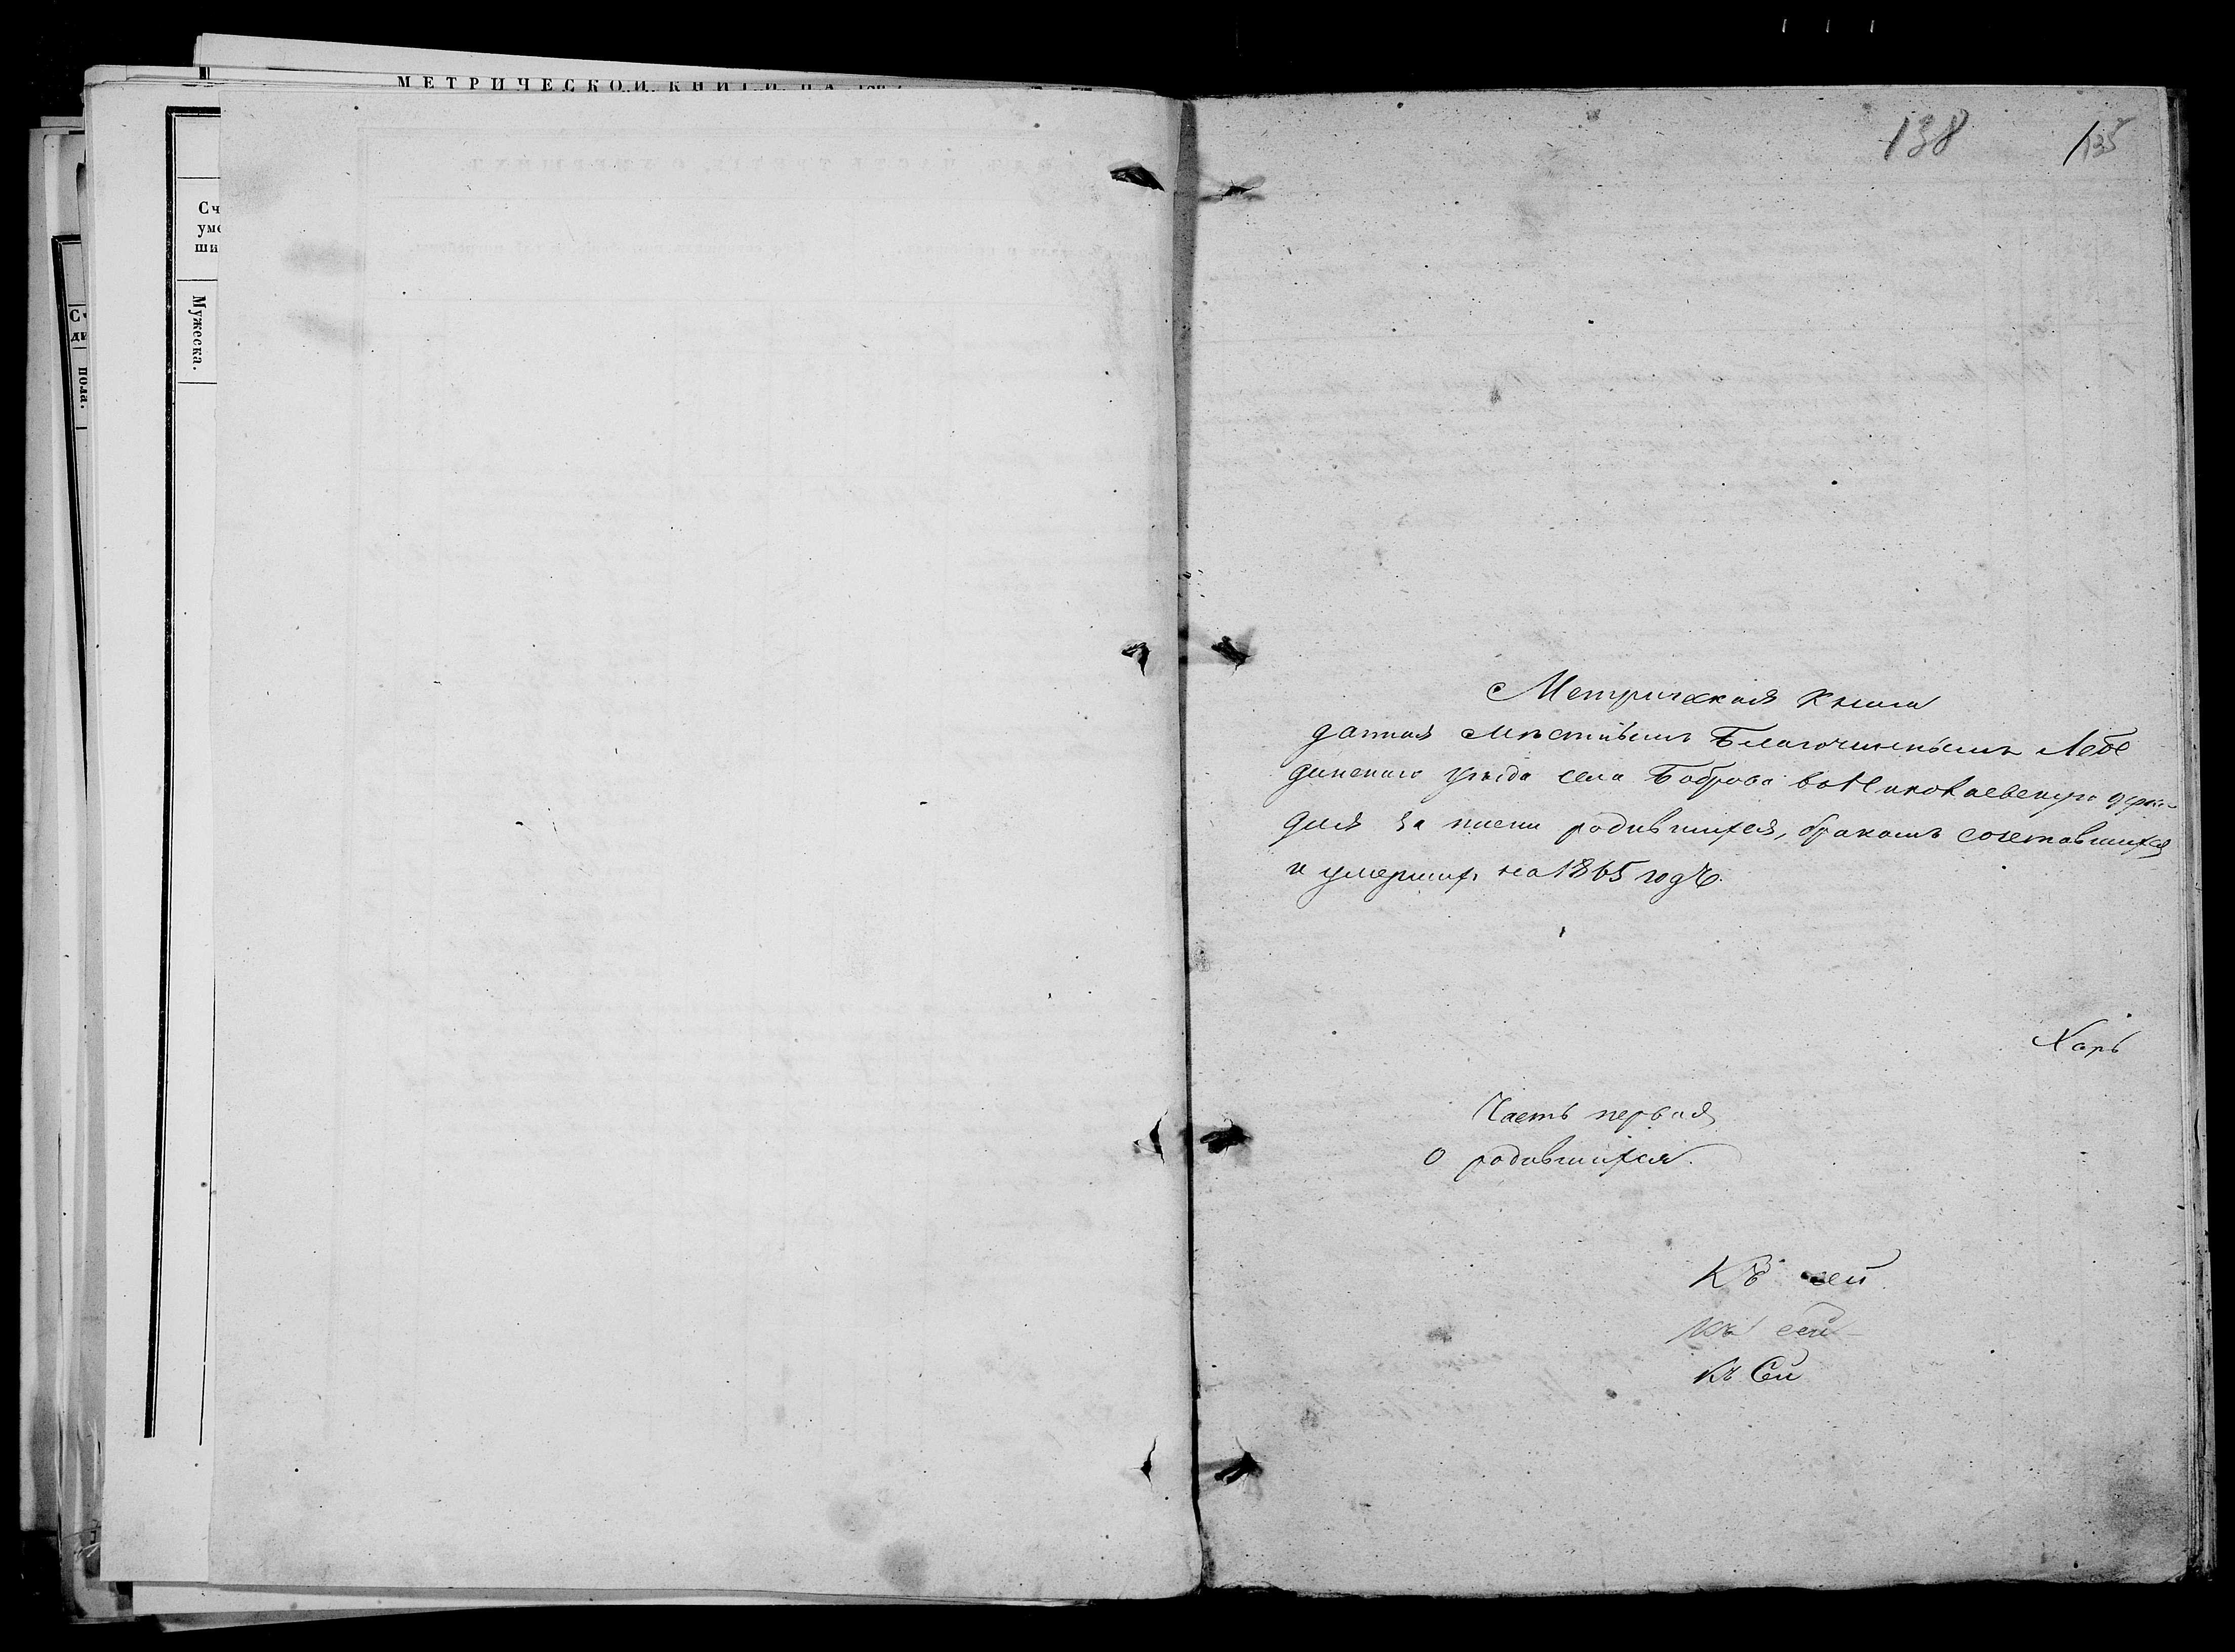 МЕТРИЧЕСКОЙ КНИГИ НА
Сч
уме
ши
Мужеска.
Сч
ди
пола.
138 135
Метрическая книга
данная мѣстнымъ Благочиннымъ Лебе
динскаго уѣзда села Боброва въ Николаевскую церк-
для записи родившихся, бракомъ сочетавшихся
и умершихъ на 1865 годъ.
Харь
Часть первая
О родившихся.
Къ сей
Къ сей
Къ Сей